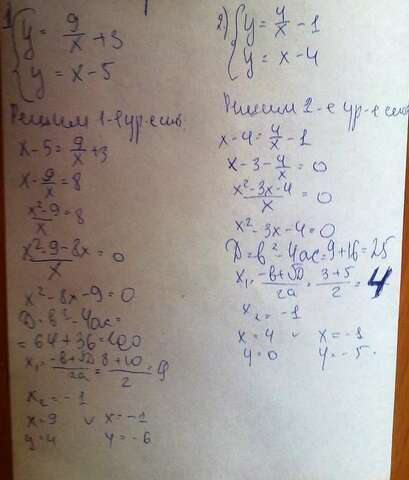 1) y = 9/x + 3
y = x - 5
Решим 1-е ур-е сист.
x - 5 = 9/x + 3
x - 9/x = 8
x² - 9/x = 8
x² - 9 - 8x/x = 0
x² - 8x - 9 = 0
D = b² - 4ac =
= 64 + 36 = 100
x₁ = -b + √D/2a = 8 + 10/2 = 9
x₂ = -1
x = 9 ∨ x = -1
y = 4 y = -6
2) y = 4/x - 1
y = x - 4
Решим 1-е ур-е сист.
x - 4 = 4/x - 1
x - 3 - 4/x = 0
x² - 3x - 4/x = 0
x² - 3x - 4 = 0
D = b² - 4ac = 9 + 16 = 25
x₁ = -b + √D/2a = 3 + 5/2 = 4
x₂ = -1
x = 4 ∨ x = -1
y = 0 y = -5.